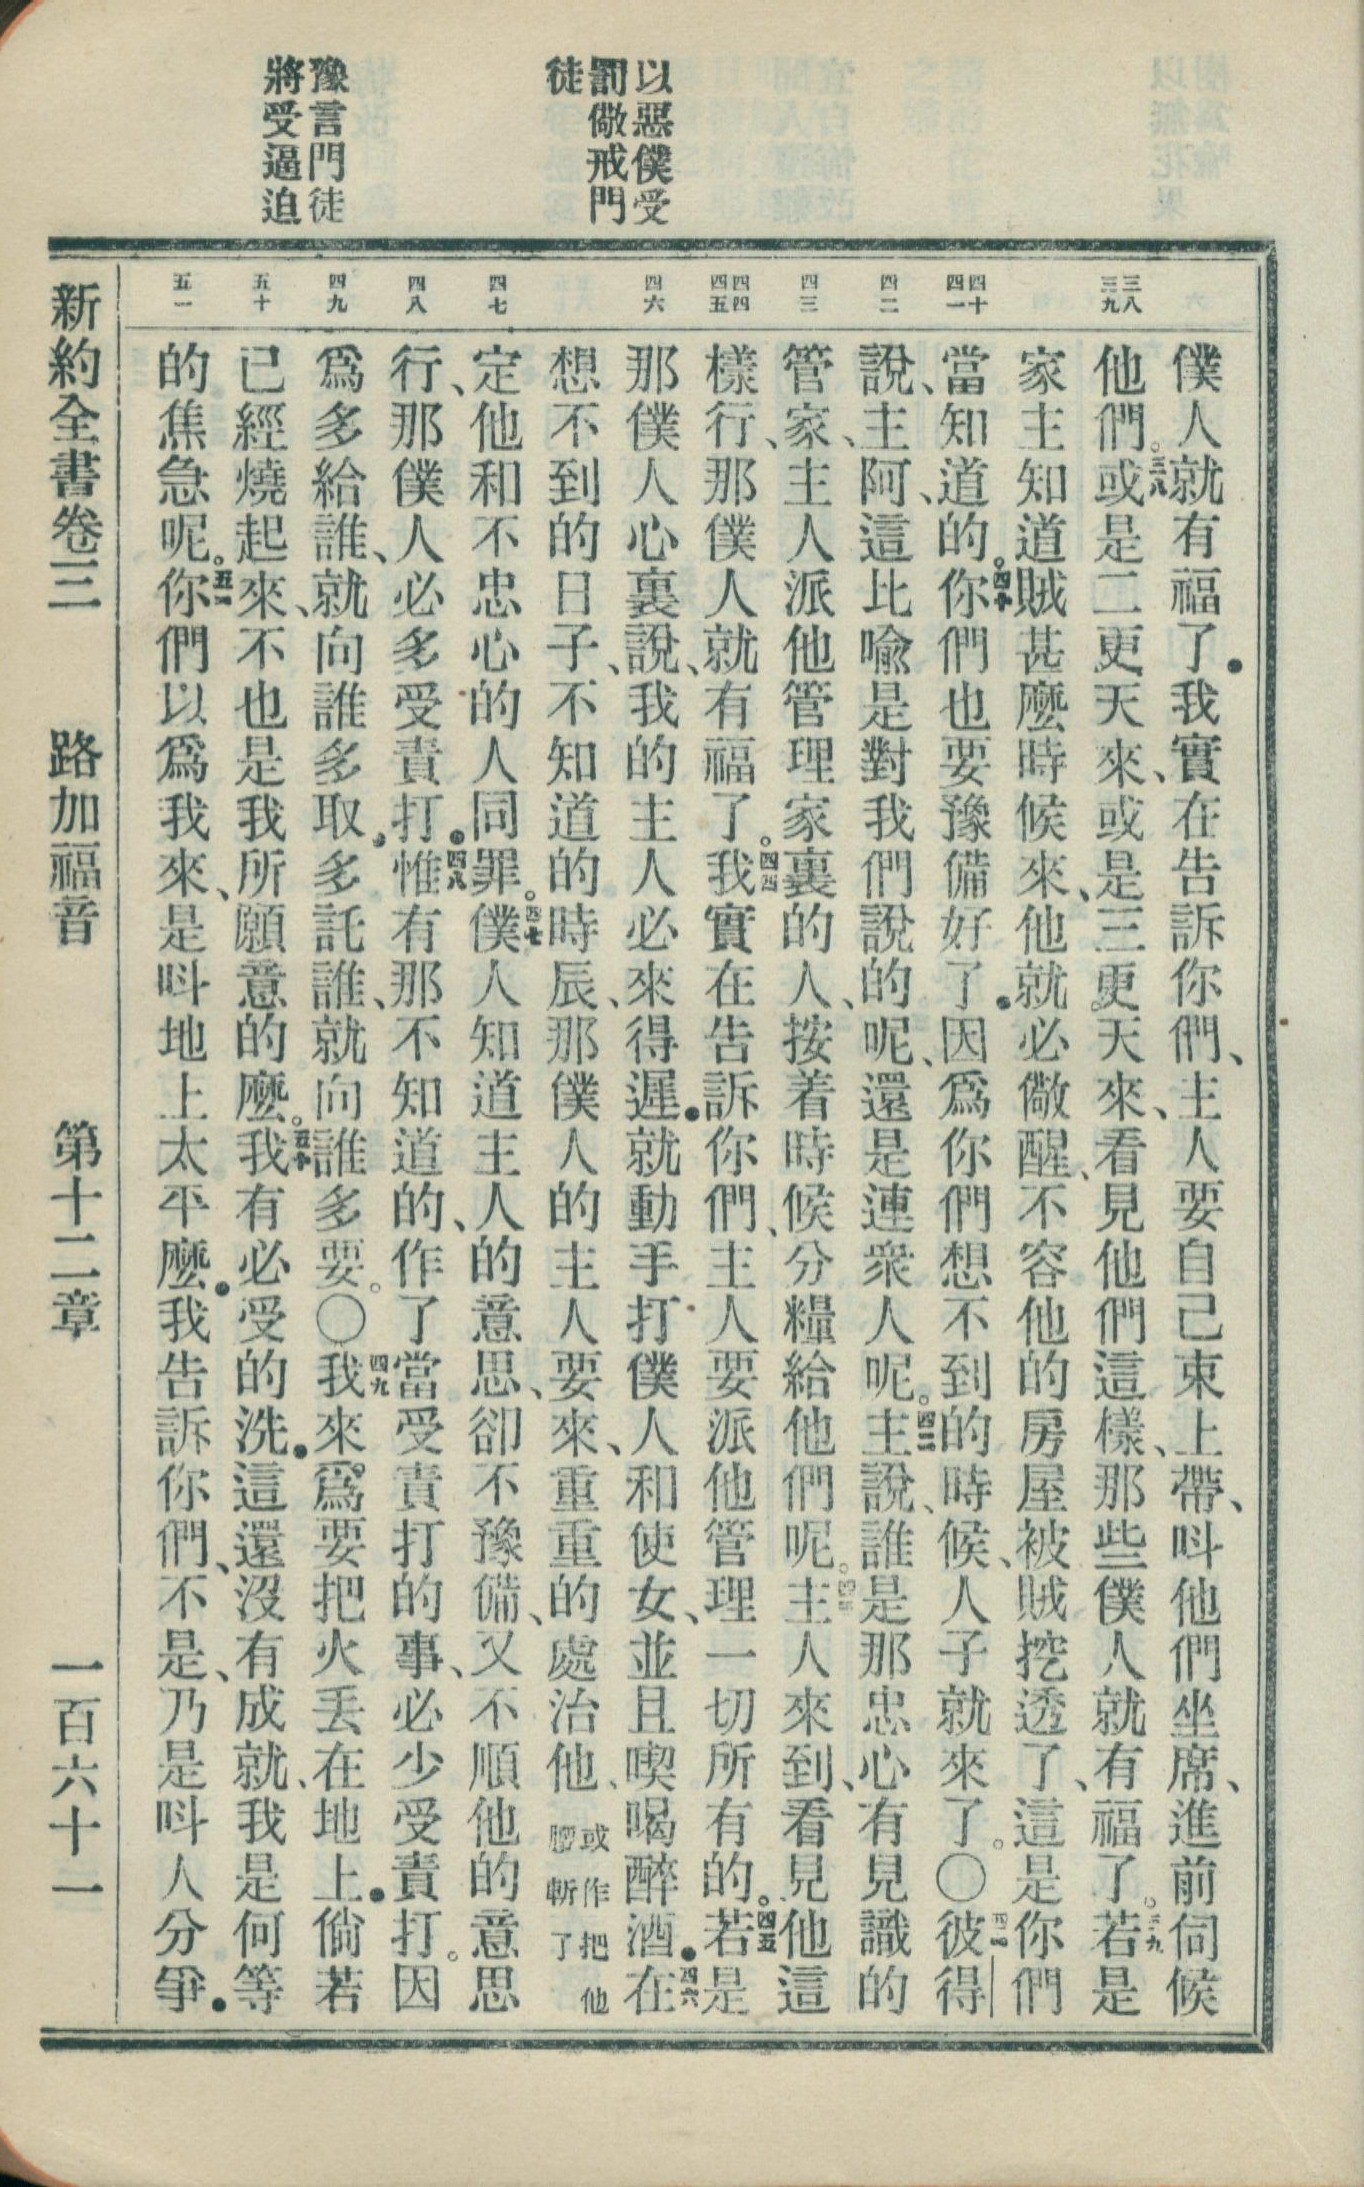 以惡僕受
罰儆戒門
徒
豫言門徒
將受逼迫
三八
三九
四十
四一
四二
四三
四四
四五
四六
四七
四八
四九
五十
五一
僕人就有福了．我實在告訴你們、主人要自己束上帶、呌他們坐席、進前伺候
他們。三八或是二更天來、或是三更天來、看見他們這樣、那些僕人就有福了。三九若是
家主知道賊甚麼時候來、他就必儆醒、不容他的房屋被賊挖透了、這是你們
當知道的。四十你們也要豫備好了．因爲你們想不到的時候、人子就來了。〇四一彼得
說、主阿、這比喩是對我們說的呢、還是連衆人呢。四二主說、誰是那忠心有見識的
管家、主人派他管理家裏的人、按着時候分糧給他們呢。四三主人來到、看見他這
樣行、那僕人就有福了。四四我實在告訴你們、主人要派他管理一切所有的。四五若是
那僕人心裏說、我的主人必來得遲．就動手打僕人和使女、並且喫喝醉酒．四六在
想不到的日子、不知道的時辰、那僕人的主人要來、重重的處治他、或作把他腰斬了
定他和不忠心的人同罪。四七僕人知道主人的意思、卻不豫備、又不順他的意思
行、那僕人必多受責打．四八惟有那不知道的、作了當受責打的事、必少受責打。因
爲多給誰、就向誰多取．多託誰、就向誰多要。〇四九我來爲要把火丟在地上．倘若
已經燒起來、不也是我所願意的麼。五十我有必受的洗．這還沒有成就、我是何等
的焦急呢。五一你們以爲我來、是呌地上太平麼．我告訴你們、不是、乃是呌人分爭．
新約全書卷三 路加福音 第十二章 一百六十一